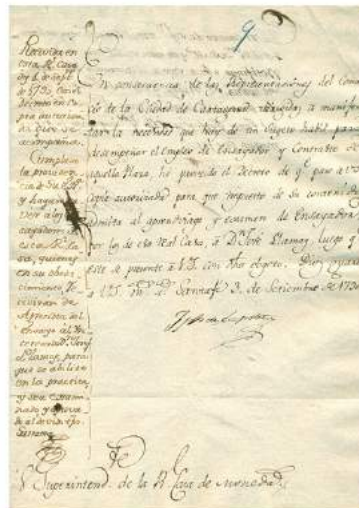 9
Recivida en
esta Rl. Casa
de 1793. con el
decreto en co-
pia autorizada
que se
acompaña.
Cumplase
la providen-
y hagase
saber a los
esta Rl. Ca-
sa, quienes
en su obde-
cimiento, re-
civiran de
Aprendiz del
Ensaye al
para
que se abilite
en la practica,
y sea exami-
nado y aprova-
do al devido
En consecuencia de las Representaciones del Comer-
cio de la Ciudad de Cartagena dirigidas a manifes-
tar la necesidad que hay de un Sugeto habil para
desempeñar el Empleo de Ensayador y Contraste de
aquella Plaza, he puesto el Decreto de que paso a VS.
copia autorizada para que impuesto de su contenido
admita al aprendizage y examen de Ensayador
por los de esa Real Casa, a Dn. José Llamas luego que
este se presente a VS. con dho objeto. Dios guarde
a VS. ms. as. Santafé 3. de Setiembre de 179
Sr. Superintend. de la Rl. Casa de Moneda.